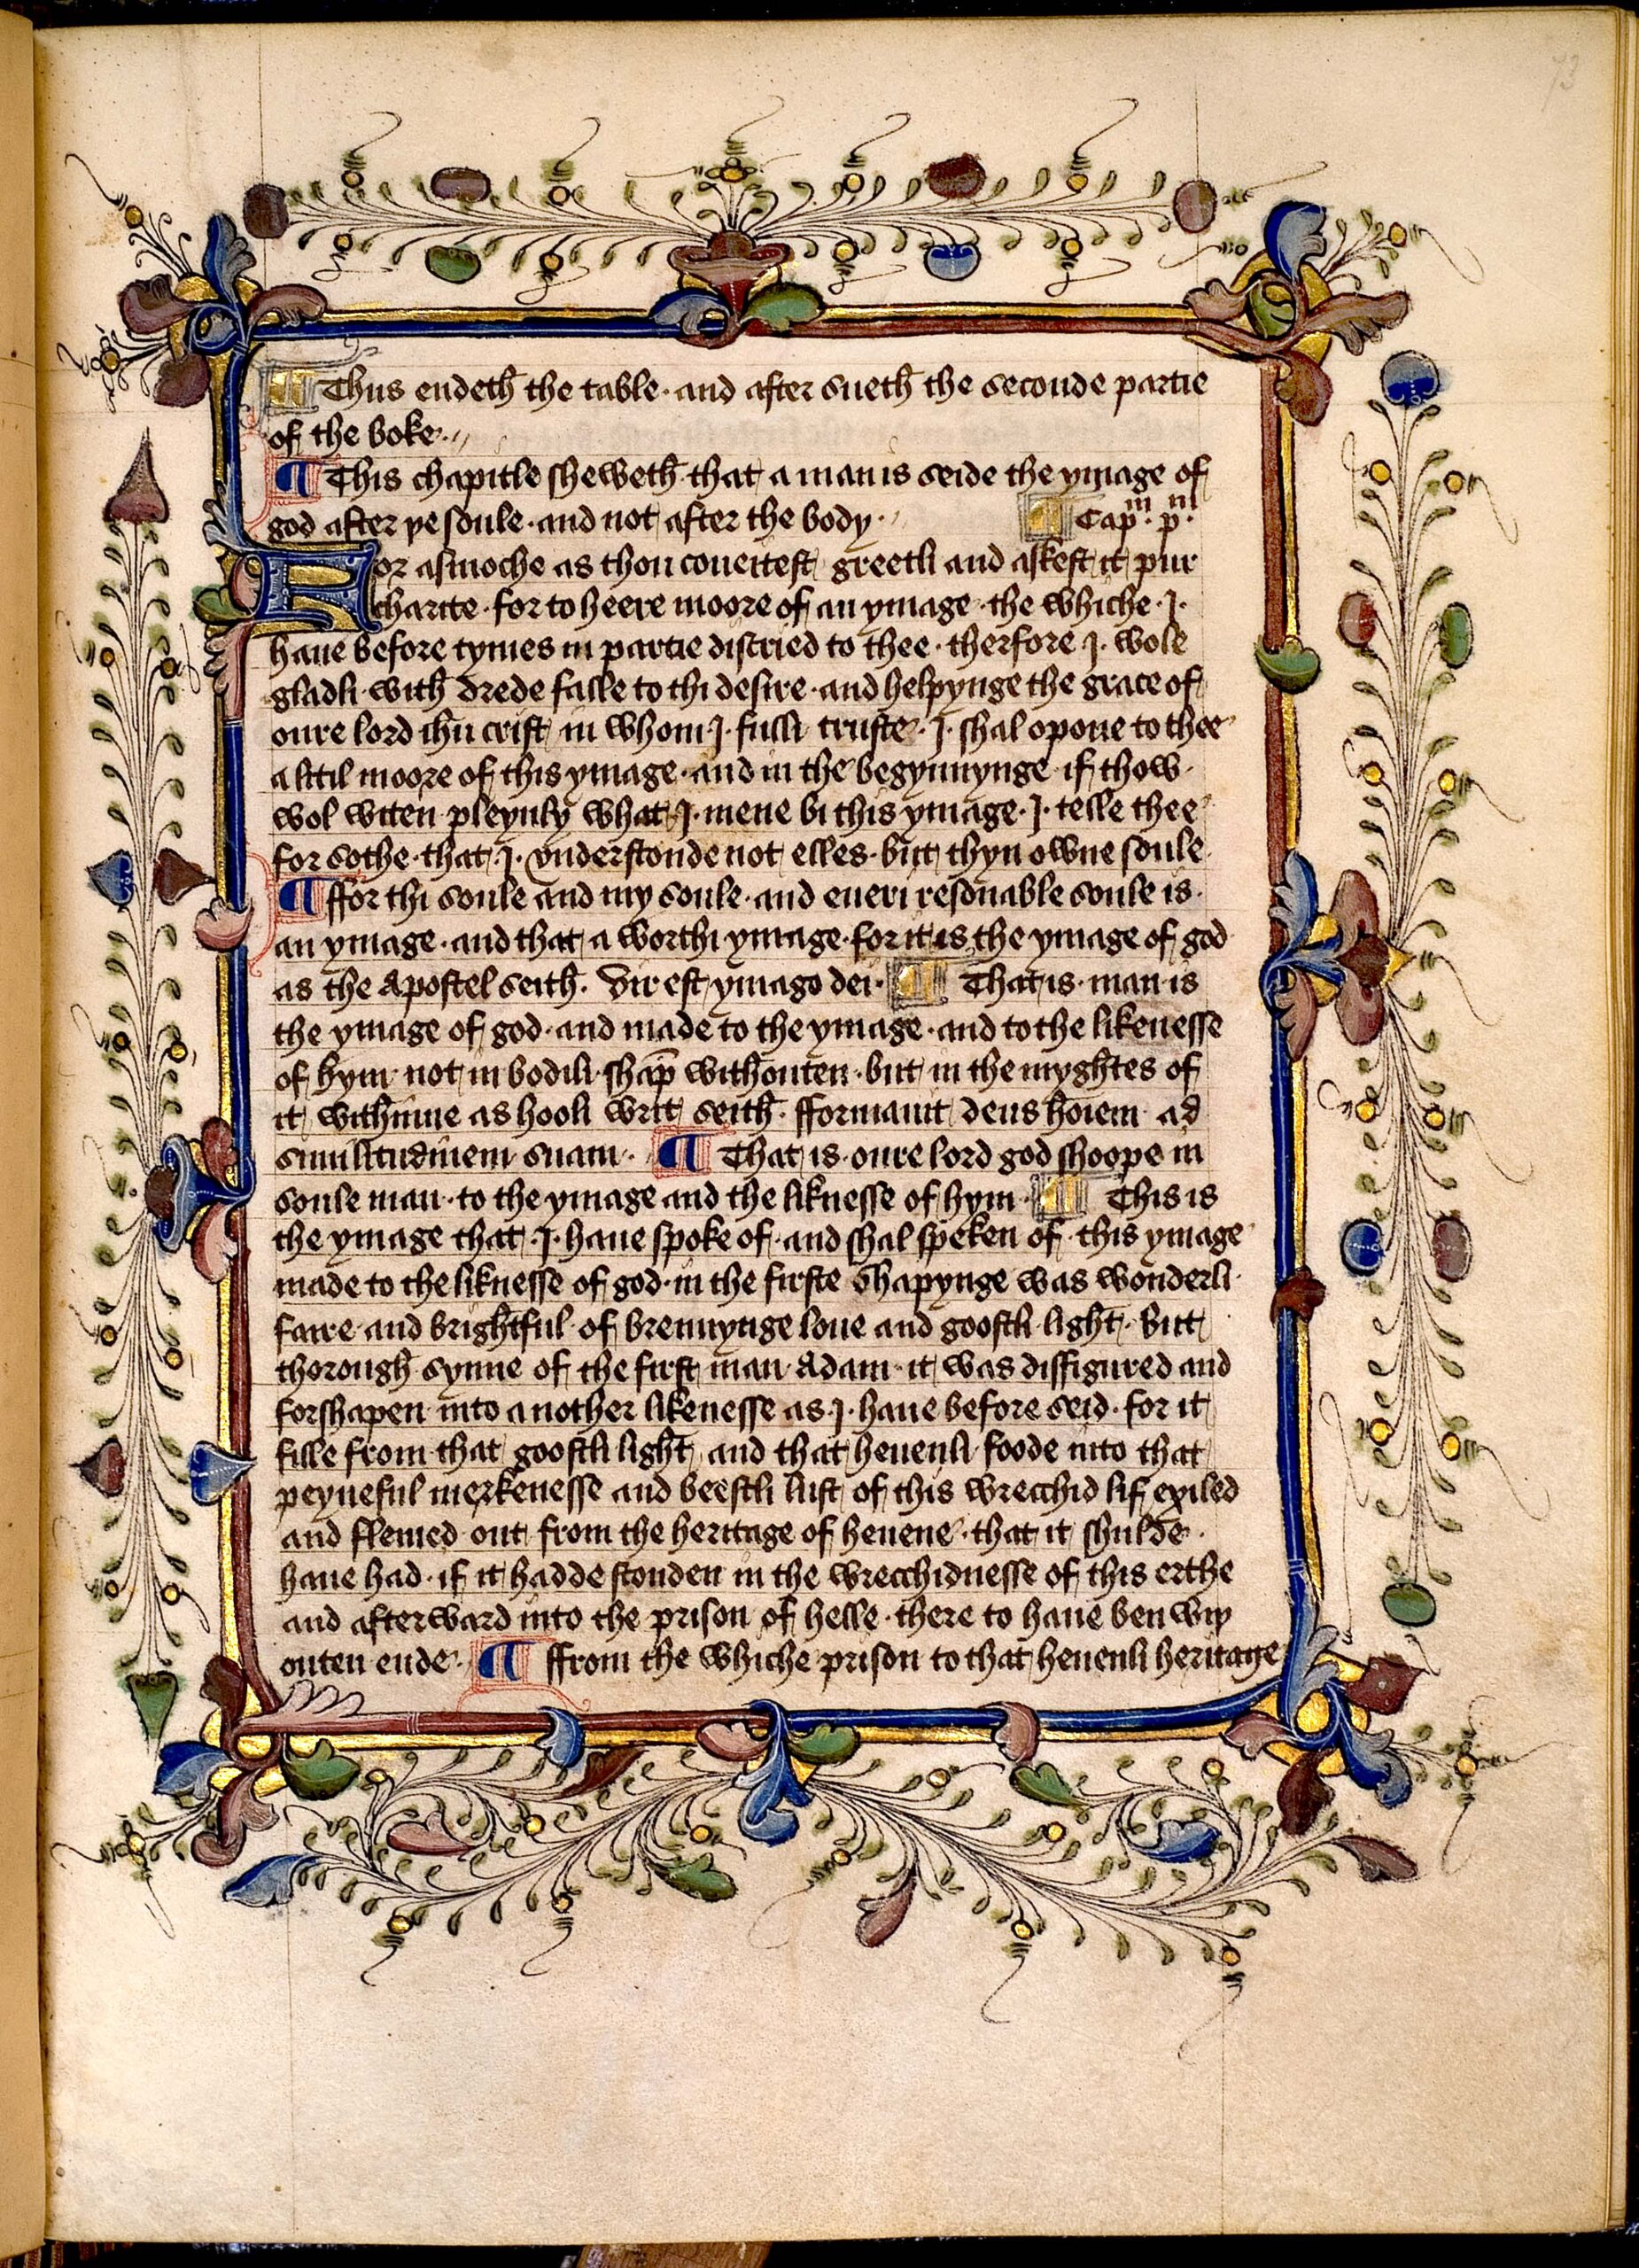 73
¶ Thus endeth the table · and after sueth the seconde partie
of the boke ·
¶ This chapitle sheweth · that a man is seide the ymage of
god after þe soule · and not after the body · ¶ Capᵐ · pᵐ ·
For asmoche as thou coueitest greetli and askest it pur
charite · for to heere moore of an ymage · the whiche · I ·
haue before tymes in partie discried to thee · therfore I · wole
gladli · with drede falle to thi desire · and helpynge the grace of
oure lord ihu crist in whom · I · fulli truste · I · shal opone to thee
a litil moore of this ymage · and in the begynnynge if thow ·
wol witen pleynly what · I · mene bi this ymage · I · telle thee
for sothe · that · I · vnderstonde not elles · but thyn owne soule
¶ ffor thi soule and my soule · and eueri resonable soule is ·
an ymage · and that a worthi ymage · for it is the ymage of god
as the Apostel seith · Vir est ymago dei · ¶ That is · man is
the ymage of god · and made to the ymage · and to the likenesse
of hym · not in bodili · shap̄ withouten · but in the myghtes of
it withinne as hooli writ seith · fformauit deus hoīem ad
similitudinem suam · ¶ That is · oure lord god shoope in
soule man · to the ymage and the liknesse of hym · ¶ This is
the ymage that · I · haue spoke of · and shal speken of · this ymage
made to the liknesse of god · in the firste shapynge was wonderli ·
faire · and brightful · of brennynge loue and goostli · light · But
thorough synne of the first man Adam · it was disfigured and
forshapen into another likenesse as · I · haue before seid · for it
fille from that goostli light and that heuenli · foode into that
peyneful merkenesse and beestli lust of this wrecchid lif exiled
and flemed out from the heritage of heuene · that it shulde ·
haue had · if it hadde stonden in the wrecchidnesse of this erthe
and afterward into the prison of helle · there to haue ben wiþ
outen ende · ¶ ffrom the whiche prison to that heuenli heritage